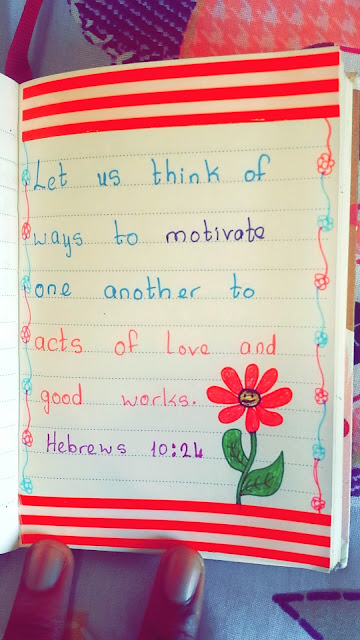 Let us think of
ways to motivate
one another to
acts of love and
good works.
Hebrews 10:24